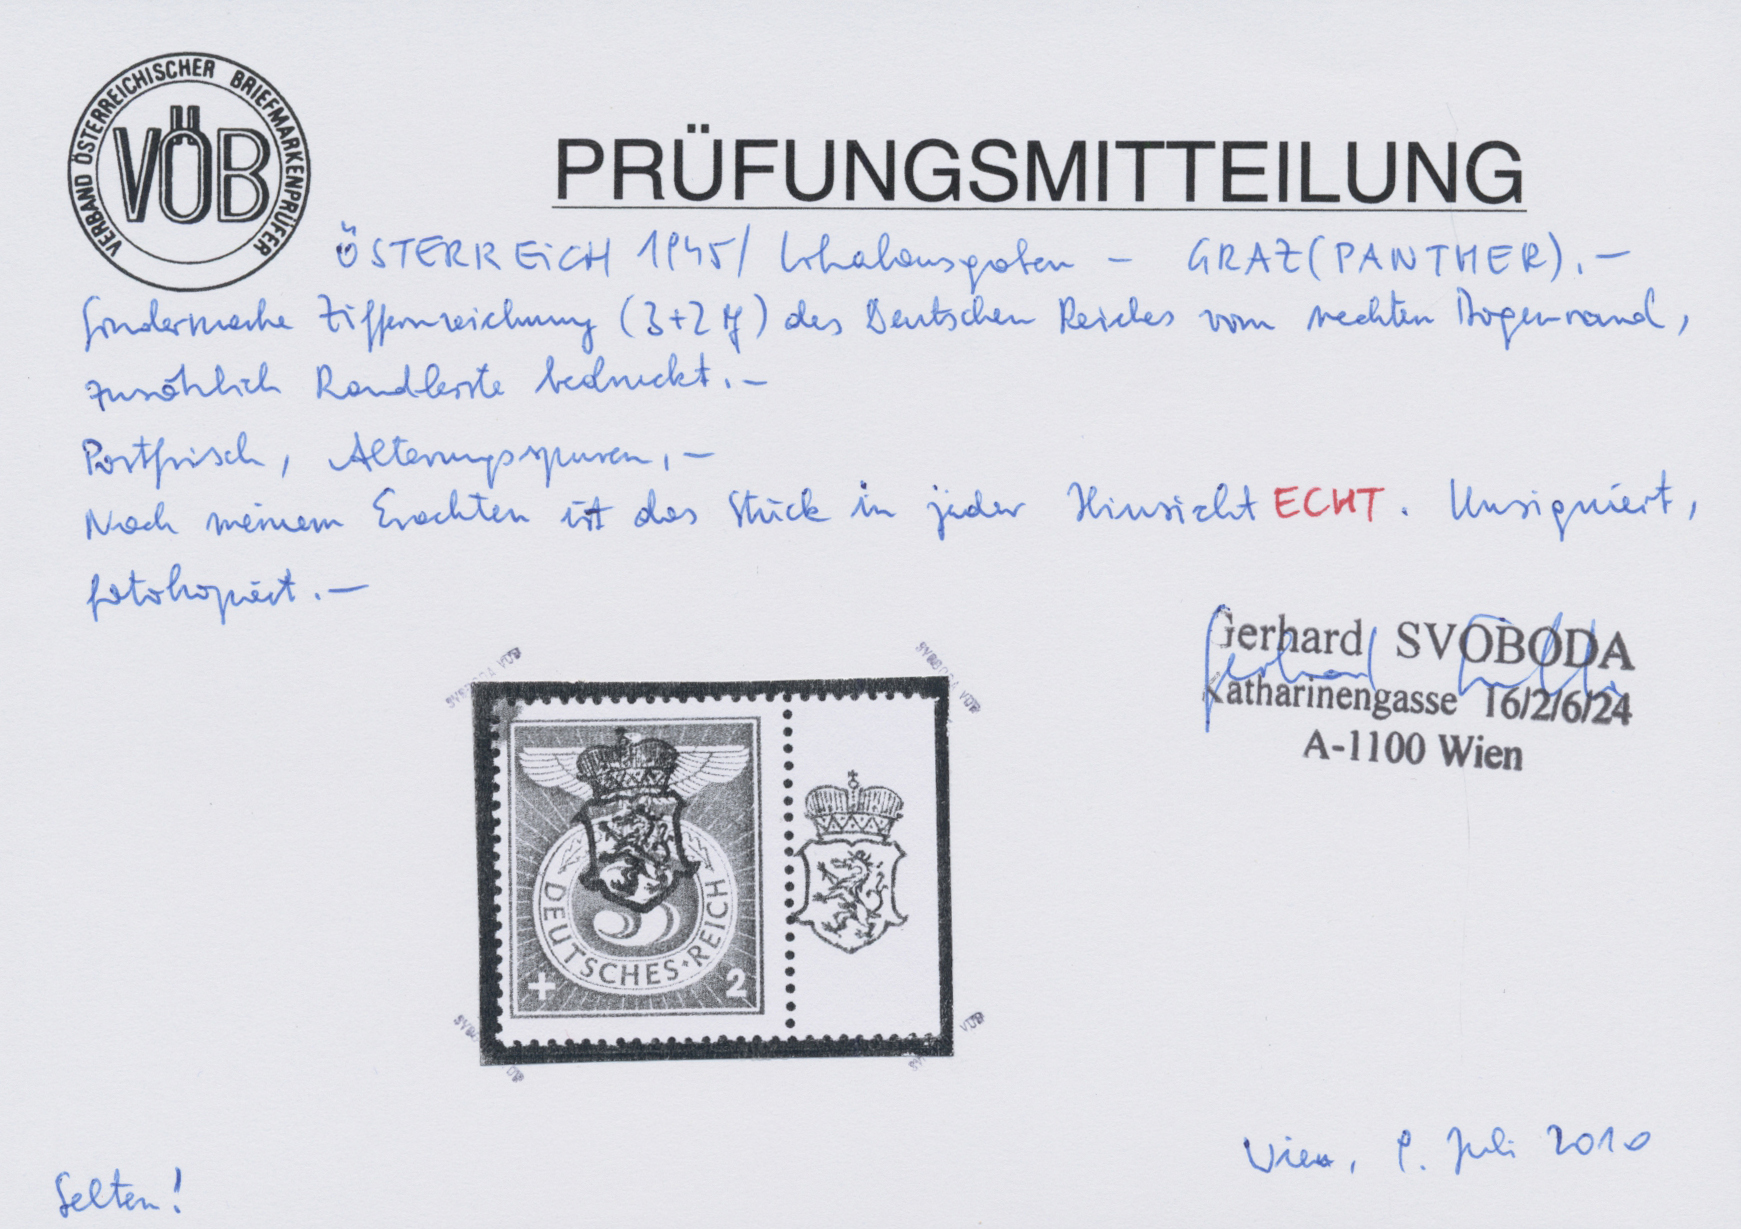 VERBAND ÖSTERREICHISCHER BRIEFMARKENPRÜFER
VÖB
PRÜFUNGSMITTEILUNG
ÖSTERREICH 1945/ Lokalausgaben - GRAZ (PANTHER).-
Sondermarke Ziffernzeichnung (3+2 Pf) des Deutschen Reiches vom rechten Bogenrand,
zusätzlich Randleiste bedruckt.-
Postfrisch, Alterungsspuren,-
Nach meinem Erachten ist das Stück in jeder Hinsicht ECHT. Unsigniert,
fotokopiert.-
Gerhard SVOBODA
Katharinengasse 16/2/6/24
A-1100 Wien
SVOBODA VÖB
SVOBODA VÖB
DEUTSCHES REICH
3
+ 2
VÖB
Wien, 9. Juli 2010
Selten!